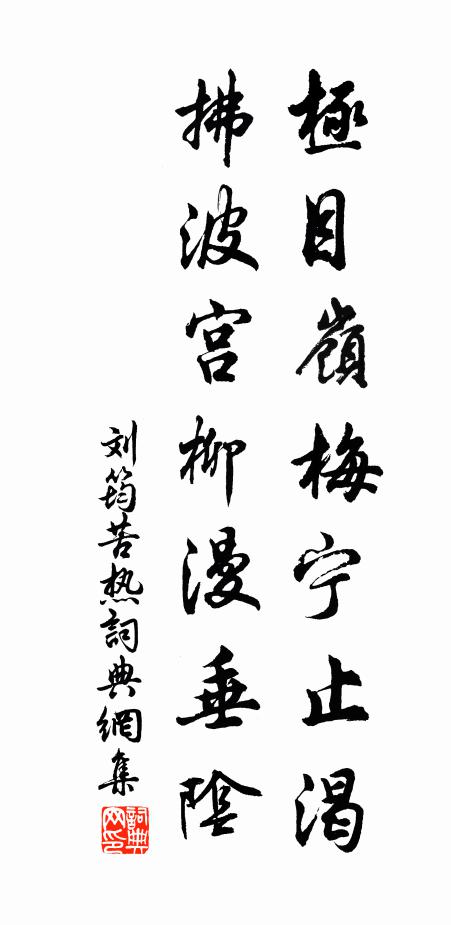 極目嶺梅宁止渴
拂波宫柳漫垂陰
刘筠苦热詞典網集
詞典
网印